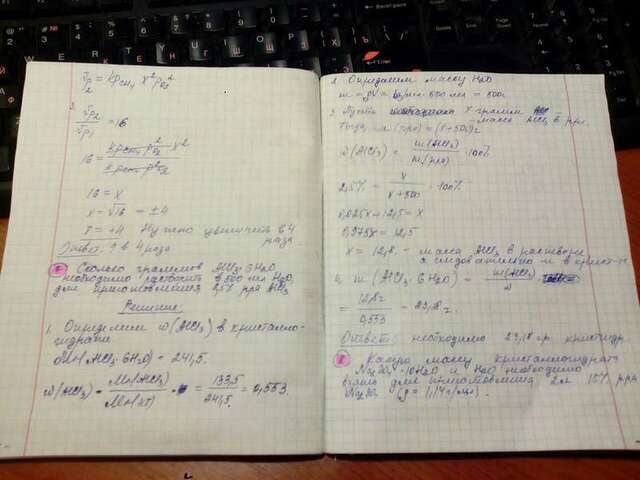 υp₂ = k p CH₄ x² p O₂²
2.
υp₂ / υp₁ = 16
16 = k p CH₄ p O₂² x² / k p CH₄ p O₂²
16 = x
x = √16 = ±4
x = +4 Нужно увеличить в 4
раза
Ответ: в 4 раза
Сколько граммов AlCl₃·6H₂O
необходимо растворить в 500 мл H₂O
для приготовления 2,5% рра AlCl₃
Решение:
1. Определим ω(AlCl₃) в кристалло-
гидрате
Mr(AlCl₃·6H₂O) = 241,5.
ω(AlCl₃) = Mr(AlCl₃) / Mr(кг) = 133,5 / 241,5 = 0,553.
2. Определим массу H₂O
m = ρV = 1г/мл · 500 мл = 500г
3. Пусть x грамм -
масса AlCl₃ в рре
Тогда m(рра) = (x+500)г
ω(AlCl₃) = m(AlCl₃) / m(рра) · 100%
2,5% = x / x+500 · 100%
0,025x + 12,5 = x
0,975x = 12,5
x = 12,8г. - масса AlCl₃ в растворе
а следовательно и в крист-те
4. m(AlCl₃·6H₂O) = m(AlCl₃) / ω
= 12,8г / 0,553 = 23,18 г.
Ответ: необходимо 23,18 гр. кристгидр.
Какую массу кристаллогидрата
·10H₂O и H₂O необходимо
взять для приготовления 2л 15% рра
(ρ = 1,14 г/мл).